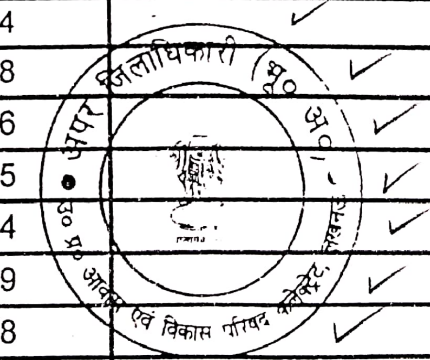 4
8
6
5
4
9
8
अपर जिलाधिकारी (भू० अ०)
उ०प्र० आवास एवं विकास परिषद कलेक्ट्रेट, लखनऊ